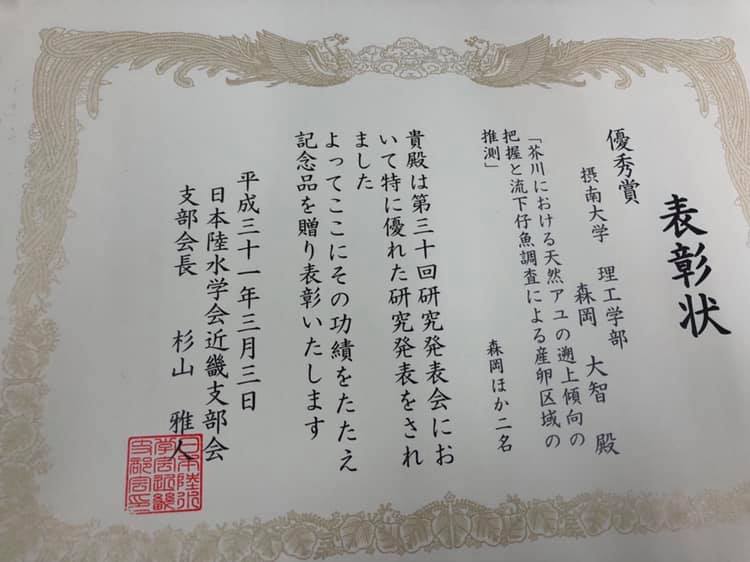 表彰状
優秀賞
摂南大学 理工学部
森岡 大智 殿
「芥川における天然アユの遡上傾向の
把握と流下仔魚調査による産卵区域の
推測」
森岡ほか二名
貴殿は第三十回研究発表会にお
いて特に優れた研究発表をされ
ました
よってここにその功績をたたえ
記念品を贈り表彰いたします
平成三十一年三月三日
日本陸水学会近畿支部会
支部会長 杉山 雅人
日本陸水
学会近畿
支部会印